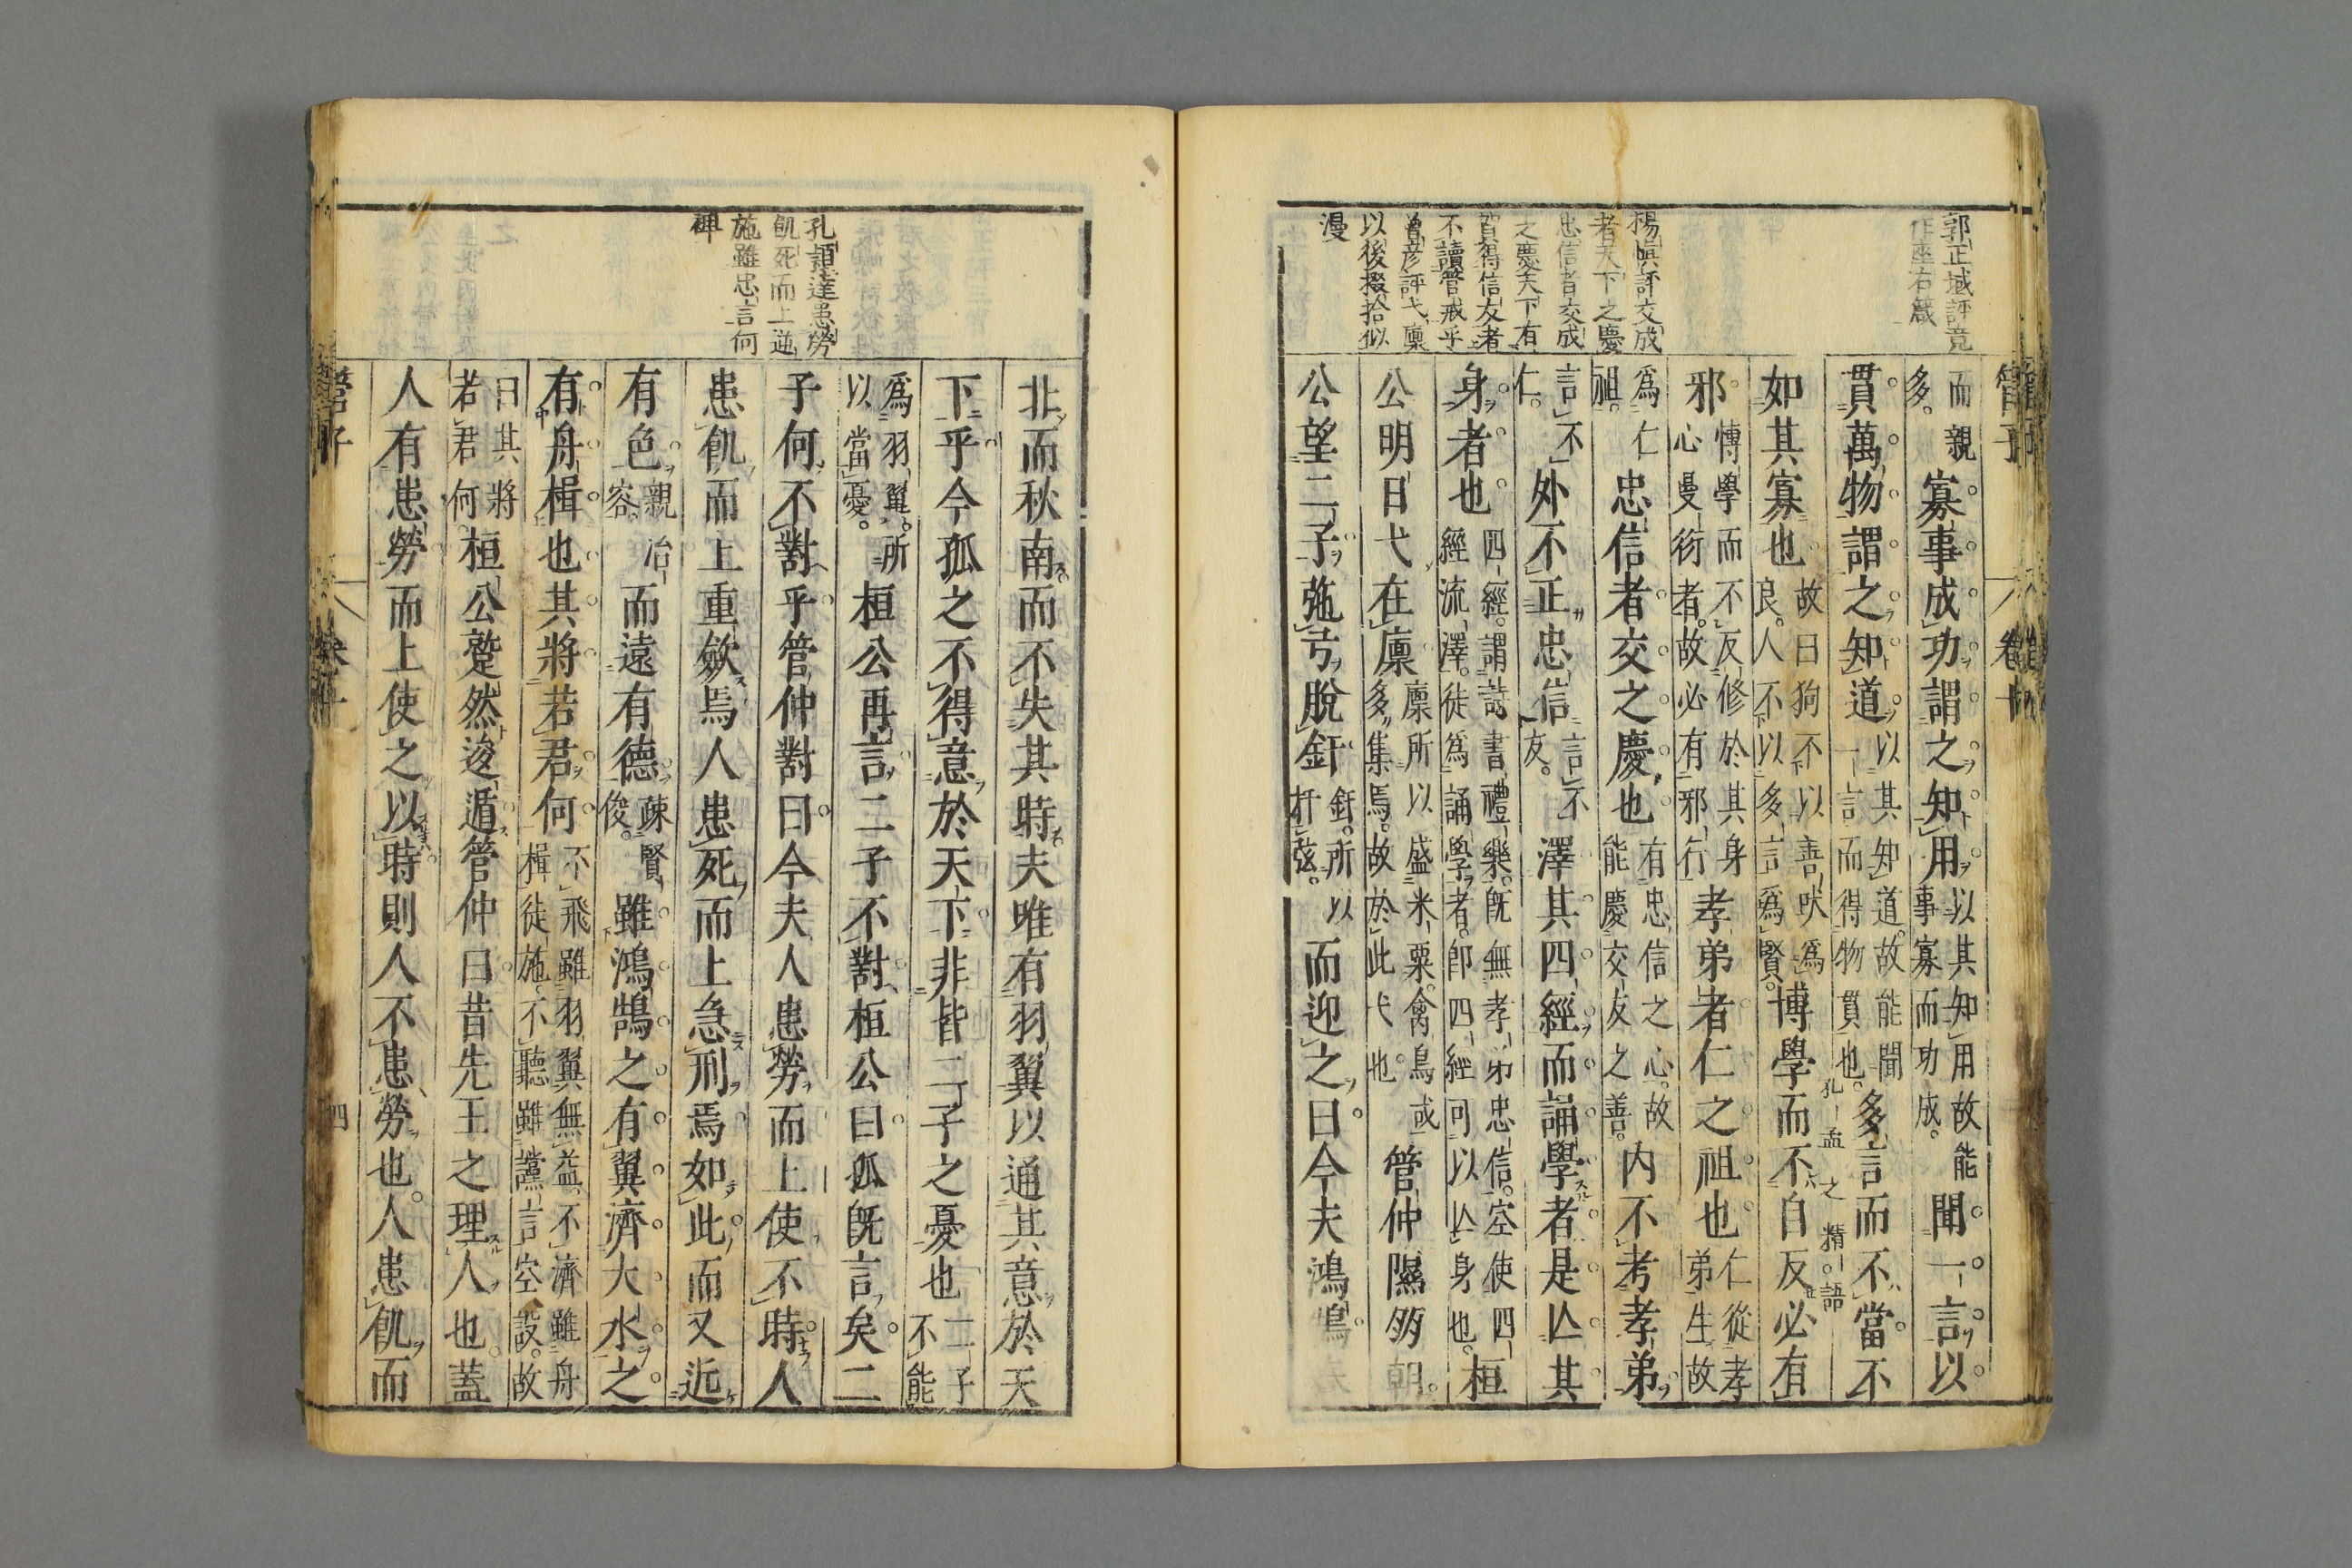 郭正域評竟
作座右箴
楊愼評交成
者天下之慶
忠信者交成
之慶天下有
皆得信友者
不讀管戒乎
曾彦評弋廩
以後掇拾似
漫
管子
卷十
而親
多。寡事成功謂之知用以其知用故能
事寡而功成。聞一言以
貫萬物謂之知道以其知道。故能聞
一言而得物貫也。多言而不當不
孔孟之精語
如其寡也故曰狗不以善吠爲
良。人不以多言爲賢。博學而不自反必有
邪博學而不反修於其身
心曼衍者。故必有邪行孝弟者仁之祖也仁從孝
弟生故
爲仁
祖。忠信者交之慶也有忠信之心。故
能慶交友之善。内不考孝弟
言不
仁。外不正忠信言不
友。澤其四經而誦學者是亾其
身者也四經。謂詩書禮樂。既無孝弟忠信。空使四
經流澤。徒爲誦學者。卽四經可以亾身也。桓
公明日弋在廩廩所以盛米粟。禽鳥或
多集焉。故於此弋也。管仲隰朋朝。
公望二子弛弓脫釬釬。所以
扞弦。而迎之曰今夫鴻鵠
孔穎達患勞
飢死而上逆
施雖忠言何
裨
北而秋南而不失其時夫唯有羽翼以通其意於天
下乎今孤之不得意於天下非皆二子之憂也二子
不能
爲羽翼。所
以當憂。桓公再言二子不對桓公曰孤既言矣二
子何不對乎管仲對曰今夫人患勞而上使不時人
患飢而上重斂焉人患死而上急刑焉如此而又近
有色親冶
容。而遠有德疎賢
俊。雖鴻鵠之有翼濟大水之
有舟楫也其將若君何不飛雖羽翼無益。不濟雖舟
楫徒施。不聽雖讜言空設。故
曰其將
若君何。桓公蹵然逡遁管仲曰昔先王之理人也蓋
人有患勞而上使之以時則人不患勞也。人患飢而
管子
四